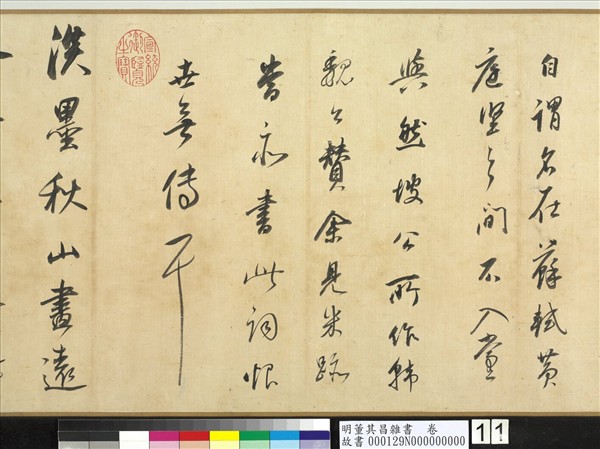 自謂名在蘇軾黃
庭堅之間不入黨
與然坡公所作韓
魏公贊余見米跡
嘗亦書此詞恨
世無傳耳
宣統御覽之寶
淡墨秋山畫遠
明董其昌雜書 卷
故書 000129N000000000
11